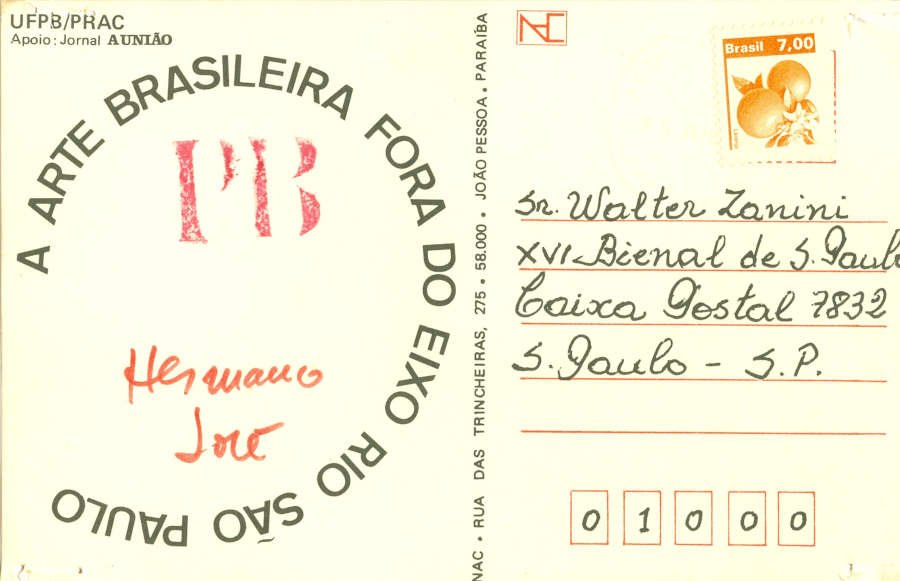 UFPB/PRAC
Apoio: Jornal A UNIÃO
A ARTE BRASILEIRA FORA DO EIXO RIO SÃO PAULO
PB
Hermano
José
NAC • RUA DAS TRINCHEIRAS, 275 • 58.000 • JOÃO PESSOA • PARAÍBA
NAC
Brasil 7,00
Sr. Walter Zanini
XVI Bienal de S. Paulo
Caixa Postal 7832
S. Paulo - S.P.
0 1 0 0 0